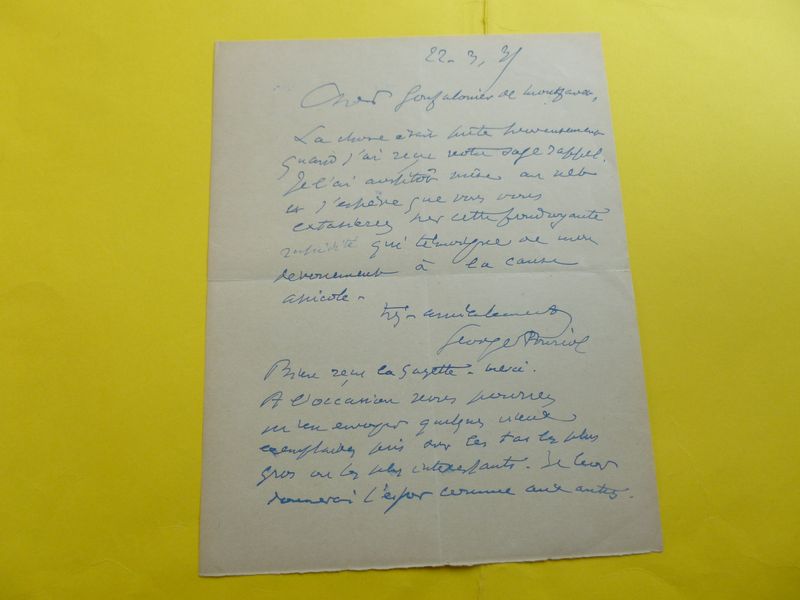 22-3,
Cher Gonfalonier de
La chose était faite heureusement
quand j'ai reçu votre sage rappel.
Je l'ai aussitôt mise au net
et j'espère que vous vous
extasierez sur cette foudroyante
rapidité qui témoigne de mon
dévouement à la cause
amicale-
Très amicalement
Georges
Bien reçu la Gazette - merci.
A l'occasion vous pourrez
m'en envoyer quelques vieux
exemplaires pris sur les tas les plus
gros ou les plus intéressants. Je leur
donnerai l'essor comme aux autres.